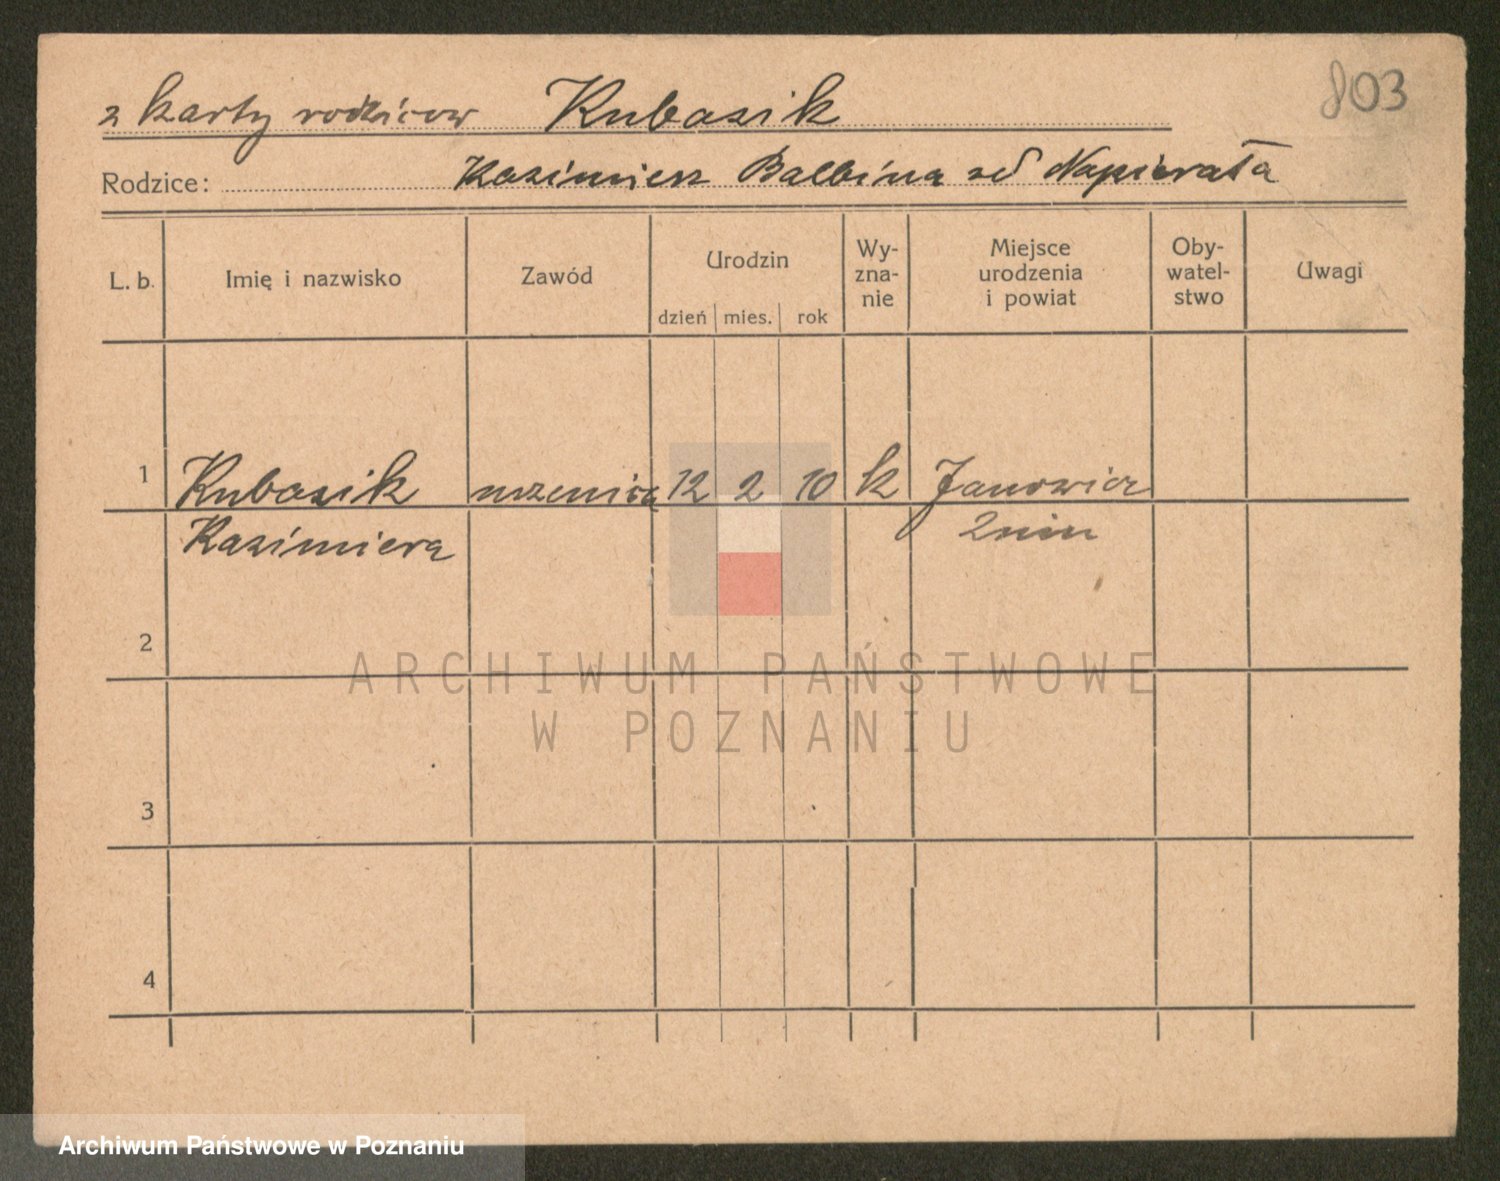 803
z karty rodziców Kubasik
Rodzice: Kazimierz Balbina zd Napierała
L. b. Imię i nazwisko Zawód Urodzin Wy-zna-nie Miejsce urodzenia i powiat Oby-watel-stwo Uwagi
dzień mies. rok
1 Kubasik uczenica 12 2 10 k Janowiec
Kazimiera Żnin
2
ARCHIWUM PAŃSTWOWE
W POZNANIU
3
4
Archiwum Państwowe w Poznaniu